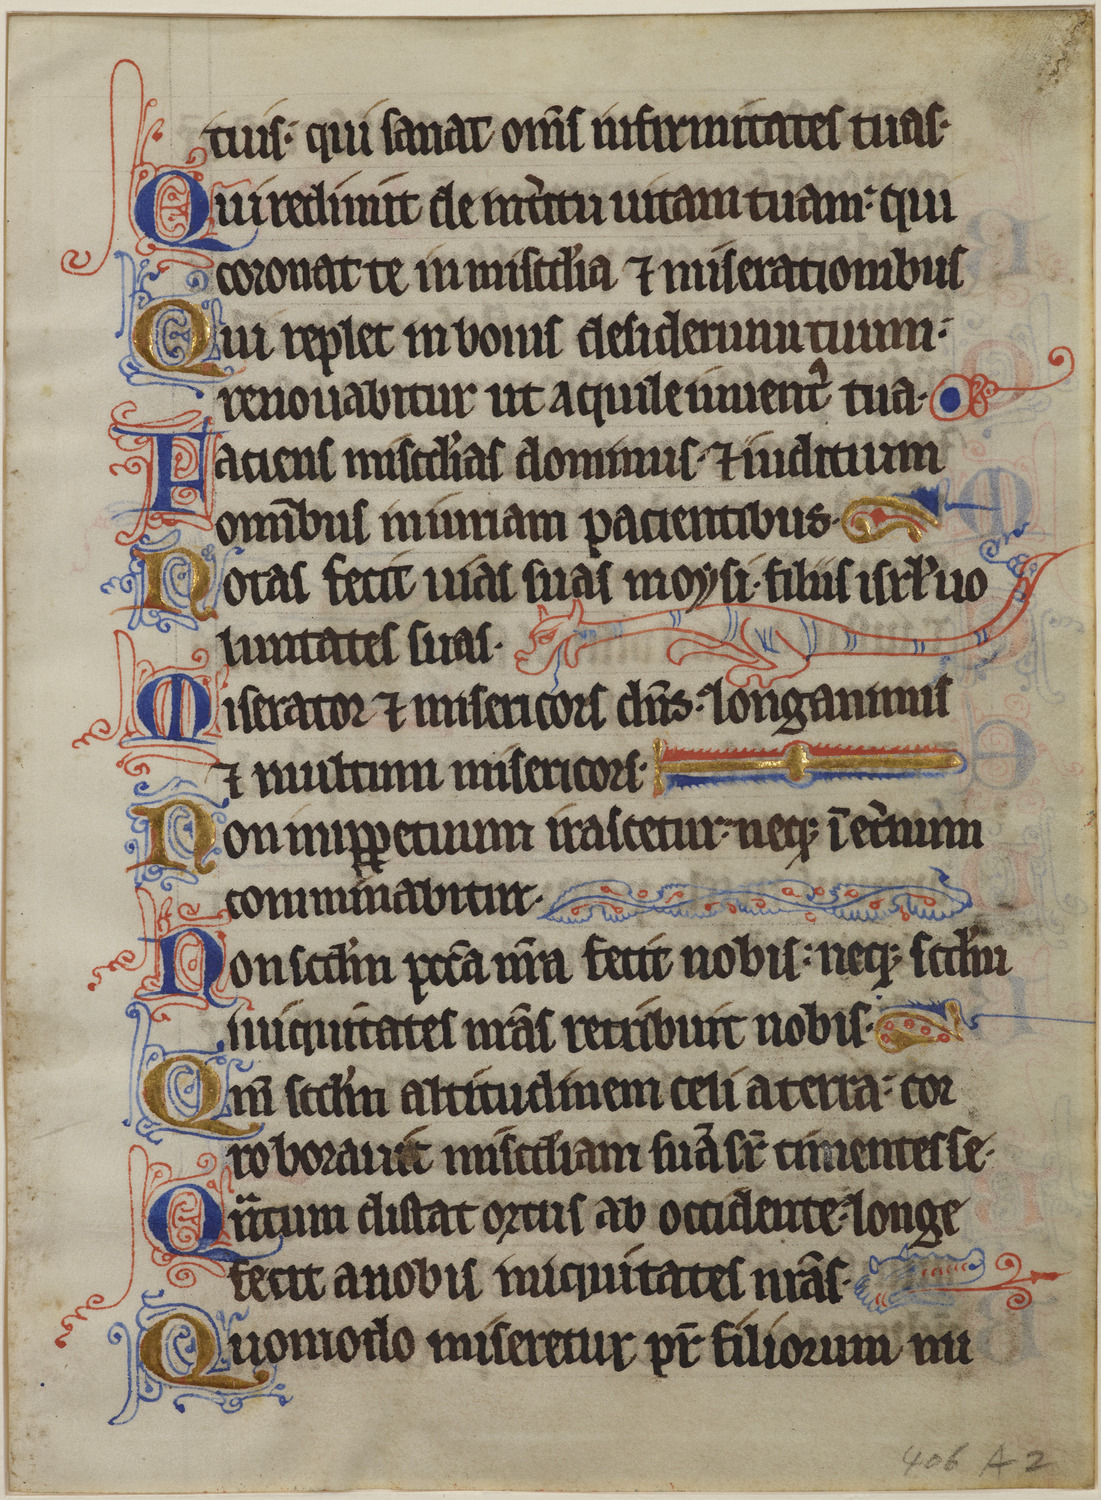 tuis· qui sanat om̄s infirmitates tuas·
Qui redimit de int̓itu uitam tuam: qui
coronat te in misc̄dia ⁊ miserationibus
Qui replet in bonis desiderium tuum:
renouabitur ut aquile iuuent᷒ tua·
Faciens misc̄dias dominus· ⁊ iudicium
omībus iniuriam pacientibus·
Notas fecit uias suas moysi· filiis isrł uo
luntates suas·
Miserator ⁊ misericors dn̄s: longanimis
⁊ multum misericors·
Non in ꝑpetuum irascetur: neqꝫ ī et̓num
comminabitur·
Non scd̄m pcc̄a nr̄a fecit nobis: neqꝫ scd̄m
iniquitates nr̄as retribuit nobis·
Qm̄ scd̄m altitudinem celi a terra: cor
roborauit misc̄diam suā sr̄ timentes se·
Qn̄tum distat ortus ab occidente: longe
fecit a nobis iniquitates nr̄as·
Quomodo miseretur pr̄ filiorum mi
406 A 2